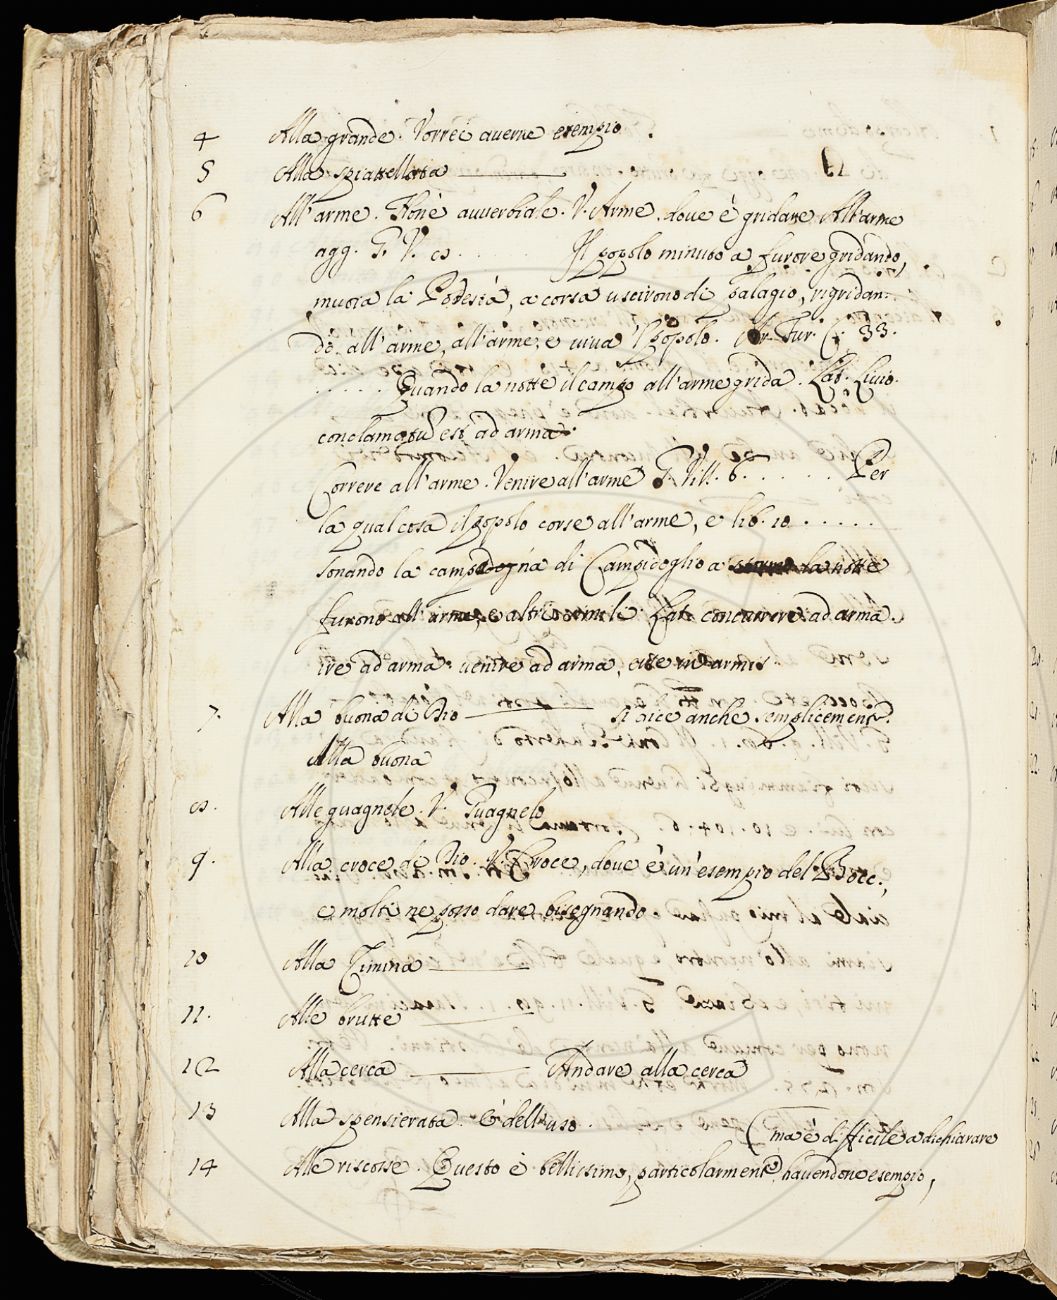 4 Alla grande. Vorrei averne esempio.
5 Alla spiattellata
6 All'arme. Non è avverbiale. V. Arme, dove è gridare All'arme
agg. G. V. 8 . . . . . Il popolo minuto a furore gridando,
muoia la Podestà, a corsa uscirono di palagio, rigridan-
do, all'arme, all'arme, e viva il popolo. Ar. Fur. C. 33.
. . . . . Quando la notte il campo all'arme grida. Lat. Livio.
conclamatum est ad arma.
Correre all'arme. Venire all'arme G. Vill. 6. . . . . . Per
la qual cosa il popolo corse all'arme, e lib. 10 . . . . .
sonando la campana di Campidoglio a la notte
furono all'arme, e altri simili. Lat. concurrere ad arma.
ire ad arma. venire ad arma, esse in armis
7. Alla buona di Dio si dice anche semplicement.
Alla buona
8. Alle guagnele. V. Guagnelo
9. Alla croce di Dio. V. Croce, dove è un'esempio del Bocc.,
e molti ne posso dare bisognando
10 Alla Cimina
11. Alle brutte
12 Alla cerca Andare alla cerca
13 Alla spensierata. È dell'uso.
(ma è difficile a dichiarare
14 Alle riscosse. Questo è bellissimo, particolarment. havendone esempio,